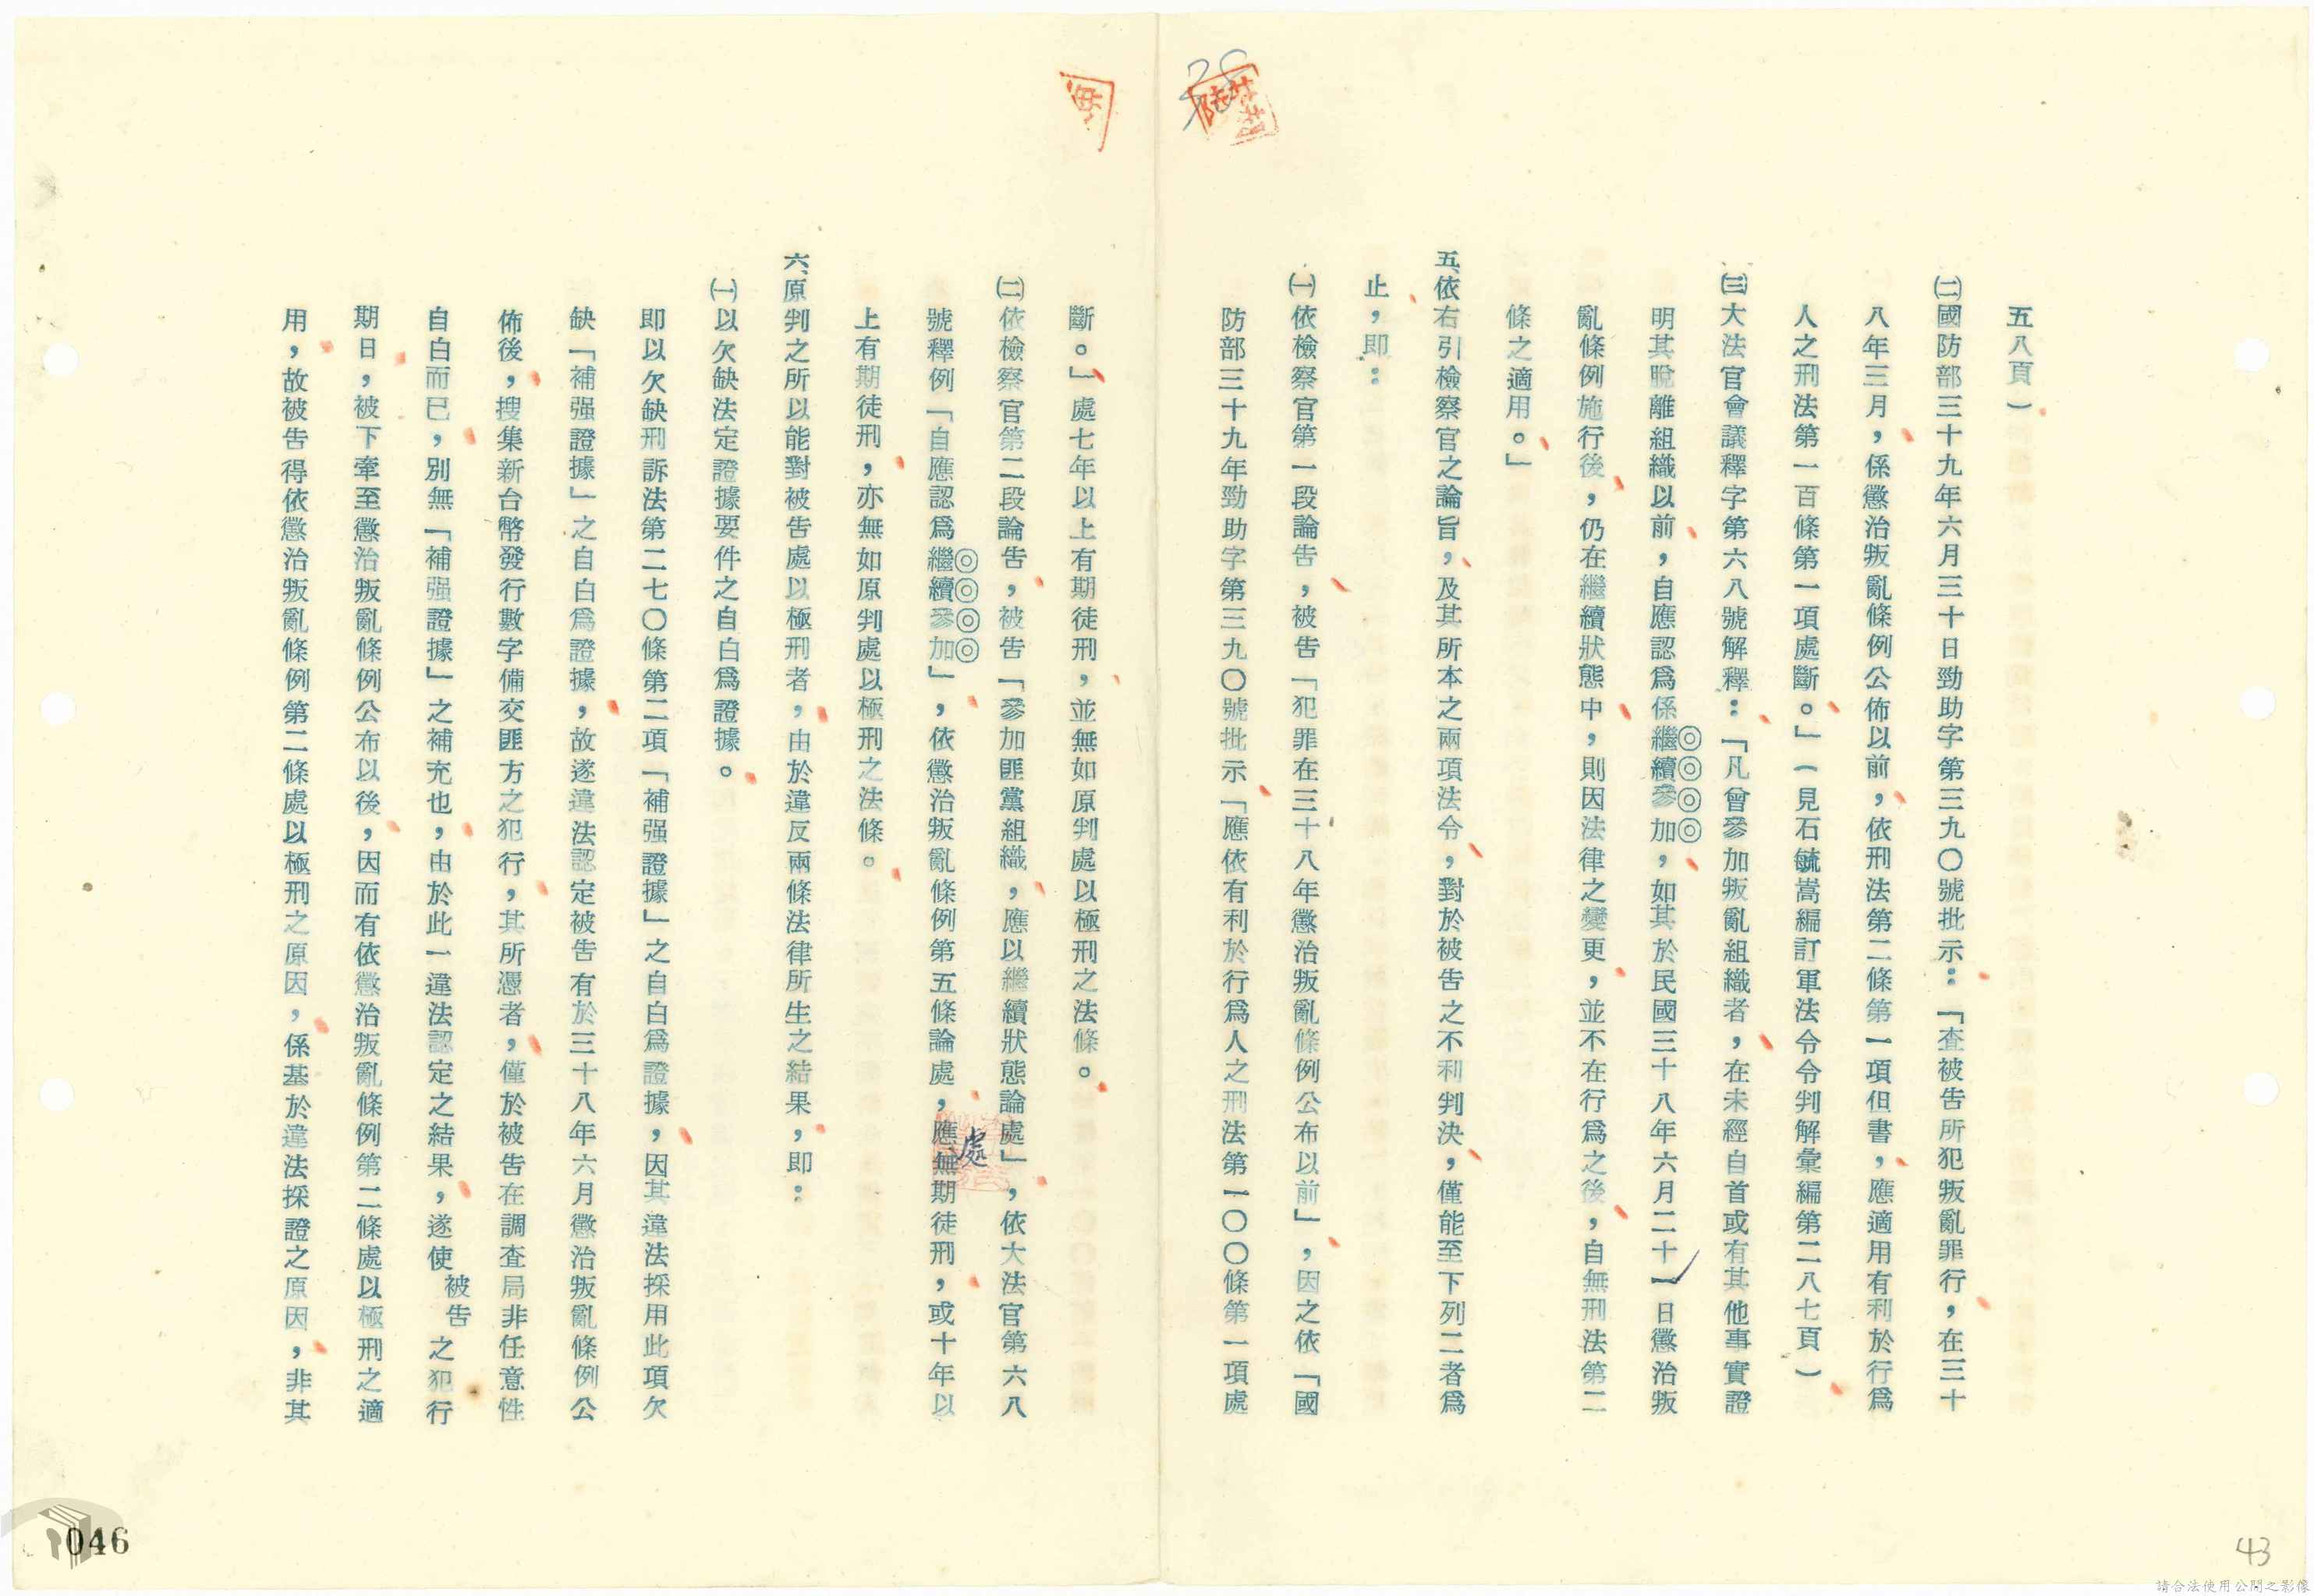 五八頁）
㈡國防部三十九年六月三十日勁助字第三九〇號批示：「查被告所犯叛亂罪行，在三十
八年三月，係懲治叛亂條例公佈以前，依刑法第二條第一項但書，應適用有利於行爲
人之刑法第一百條第一項處斷。」（見石毓嵩編訂軍法令令判解彙編第二八七頁）
㈢大法官會議釋字第六八號解釋：「凡曾參加叛亂組織者，在未經自首或有其他事實證
明其脫離組織以前，自應認爲係繼續參加，如其於民國三十八年六月二十一日懲治叛
◎◎◎◎
亂條例施行後，仍在繼續狀態中，則因法律之變更，並不在行爲之後，自無刑法第二
條之適用。」
五、依右引檢察官之論旨，及其所本之兩項法令，對於被告之不利判決，僅能至下列二者爲
止，即：
㈠依檢察官第一段論告，被告「犯罪在三十八年懲治叛亂條例公布以前」，因之依「國
防部三十九年勁助字第三九〇號批示「應依有利於行爲人之刑法第一〇〇條第一項處
斷。」處七年以上有期徒刑，並無如原判處以極刑之法條。
㈡依檢察官第二段論告，被告「參加匪黨組織，應以繼續狀態論處」，依大法官第六八
號釋例「自應認爲繼續參加」，依懲治叛亂條例第五條論處，應處無期徒刑，或十年以
◎◎◎◎
上有期徒刑，亦無如原判處以極刑之法條。
六、原判之所以能對被告處以極刑者，由於違反兩條法律所生之結果，即：
㈠以欠缺法定證據要件之自白爲證據。
即以欠缺刑訴法第二七〇條第二項「補强證據」之自白爲證據，因其違法採用此項欠
缺「補强證據」之自白爲證據，故遂違法認定被告有於三十八年六月懲治叛亂條例公
佈後，搜集新台幣發行數字備交匪方之犯行，其所憑者，僅於被告在調查局非任意性
自白而已，別無「補强證據」之補充也，由於此一違法認定之結果，遂使被告之犯行
期日，被下牽至懲治叛亂條例公布以後，因而有依懲治叛亂條例第二條處以極刑之適
用，故被告得依懲治叛亂條例第二條處以極刑之原因，係基於違法採證之原因，非其
046
43
請合法使用公開之影像